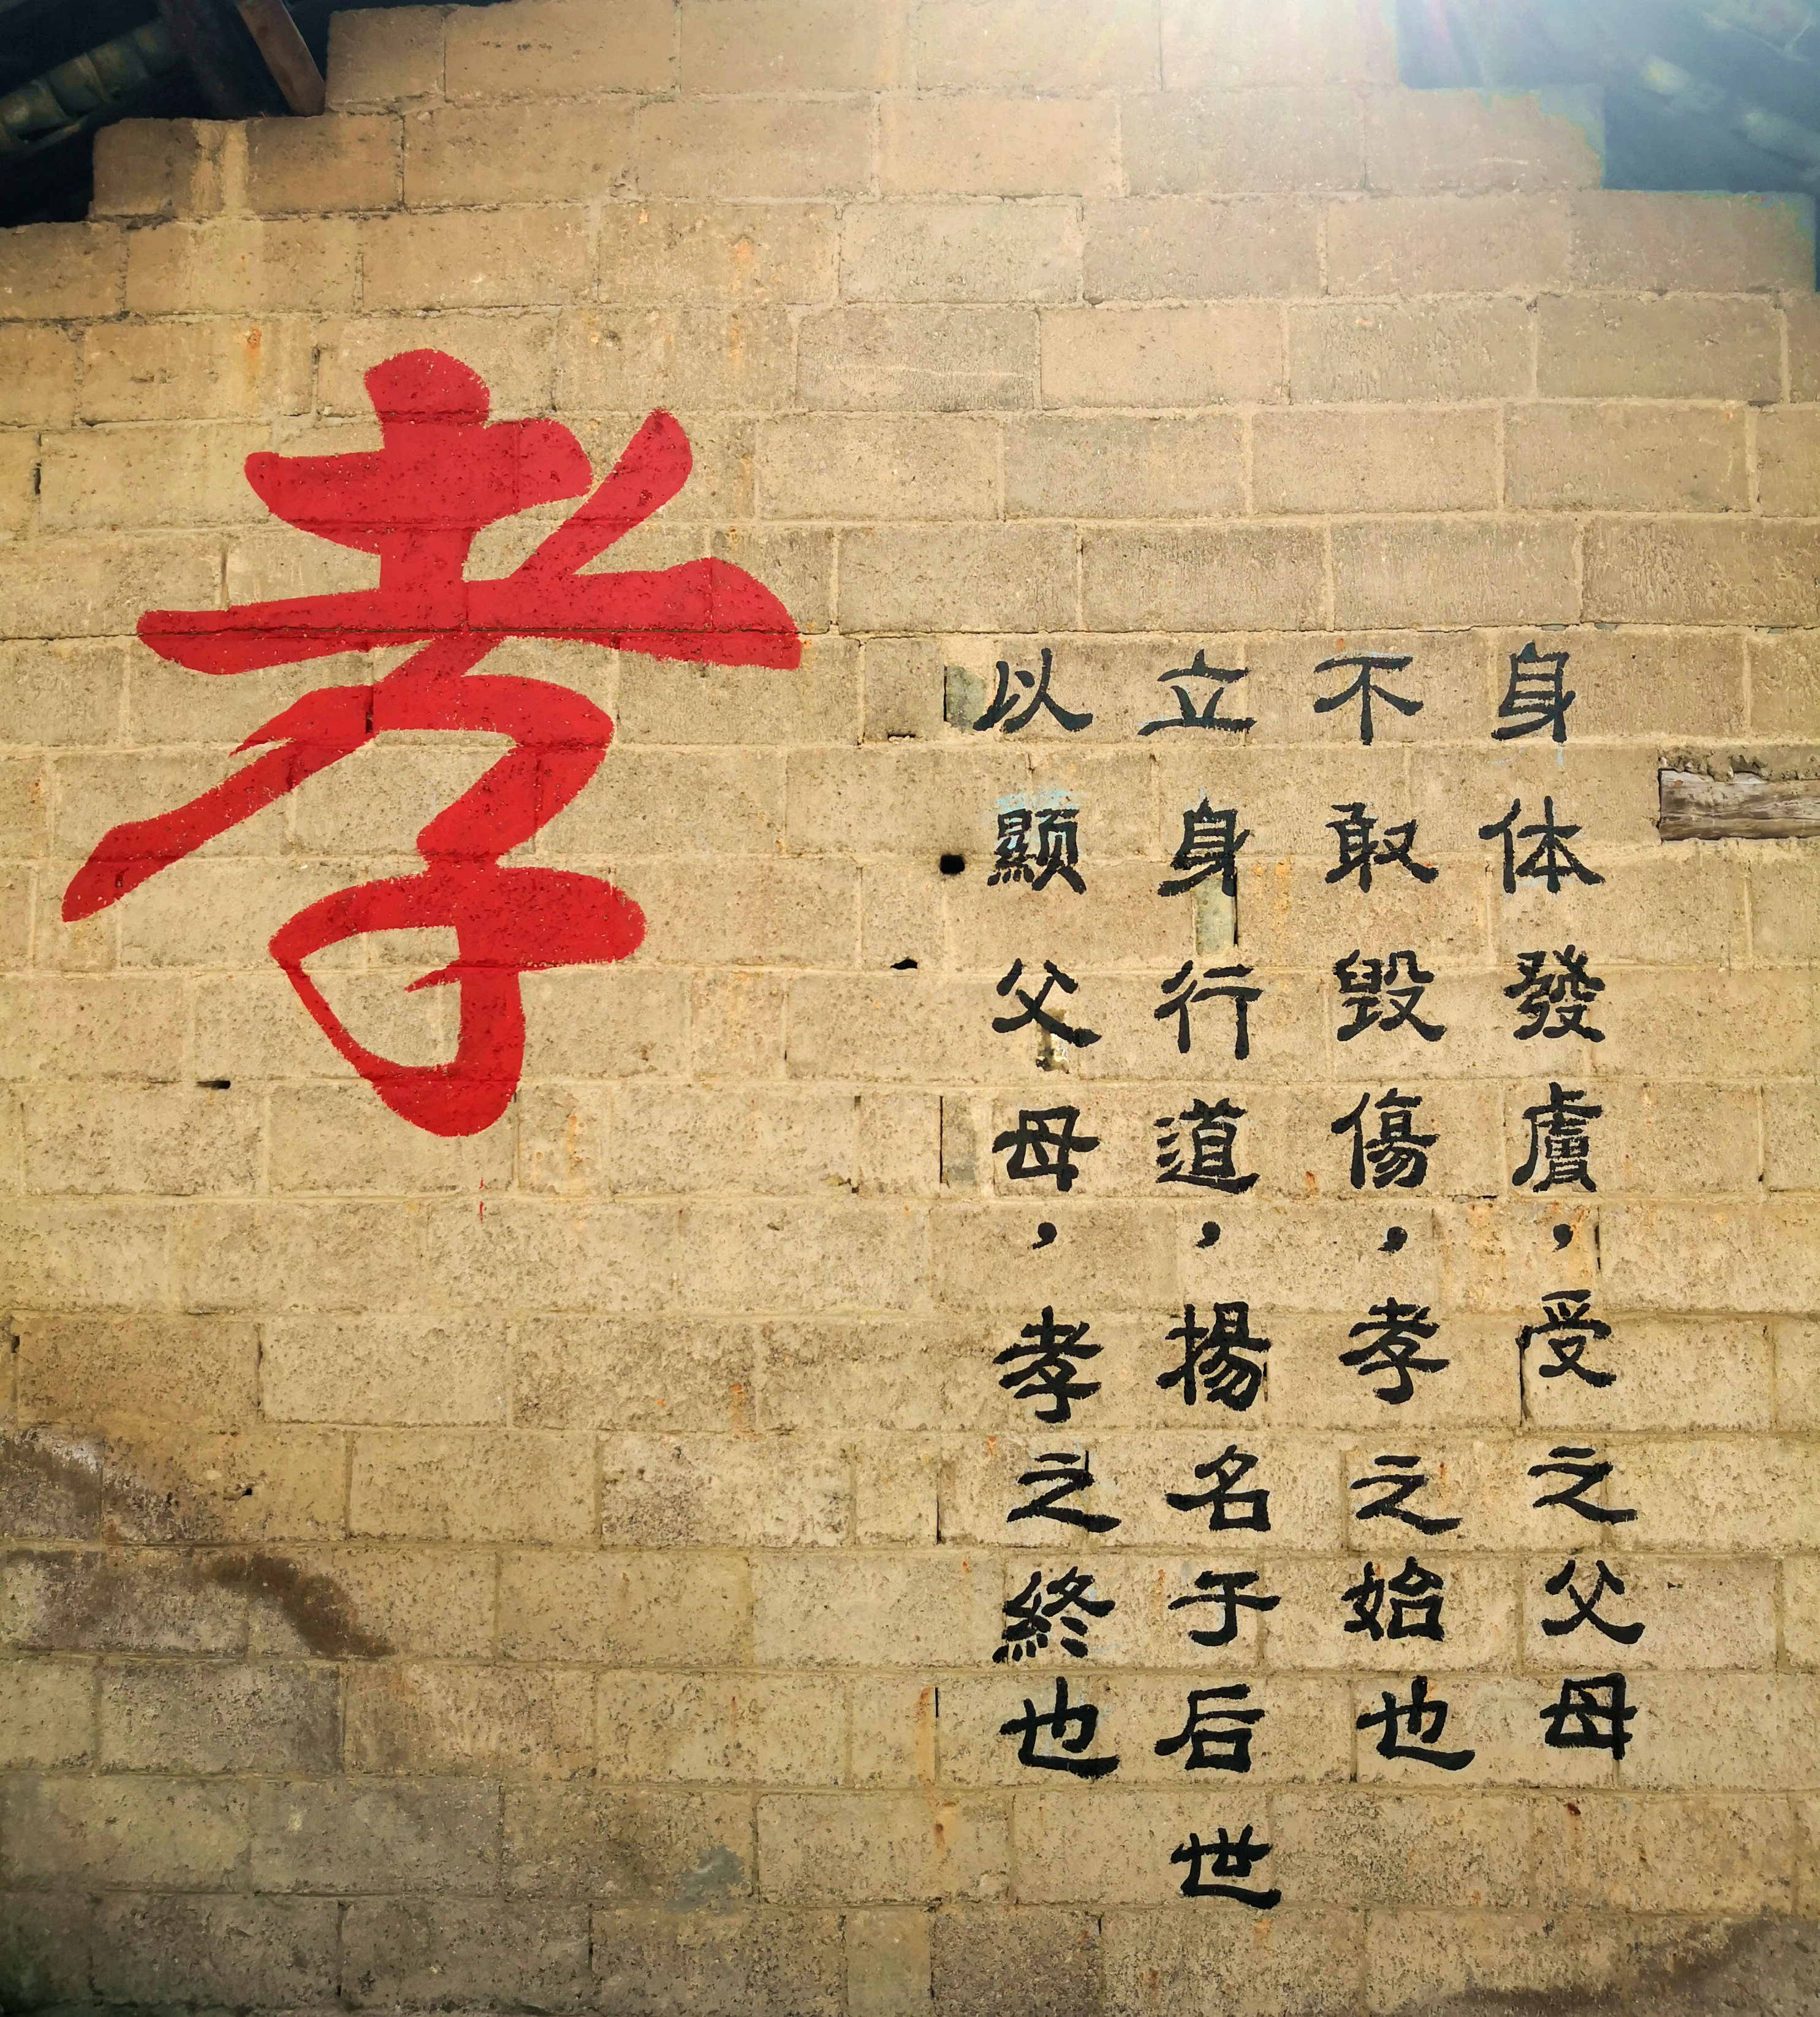 孝
身体發膚，受之父母
不敢毀傷，孝之始也
立身行道，揚名于后世
以顯父母，孝之終也